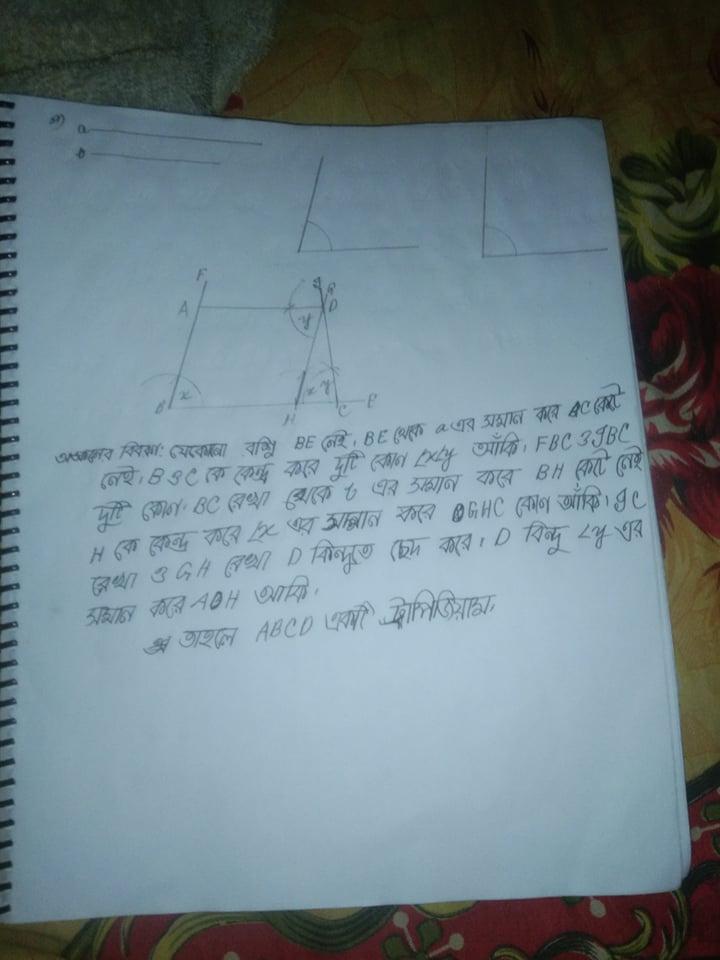 a
b
F
A
D
y
x
B
H
x y
C
E
অঙ্কনের বিবরণ: যেকোনো রশ্মি BE নেই, BE থেকে a এর সমান করে BC কেটে
নেই, B ও C কে কেন্দ্র করে দুটি কোন ∠x ∠y আঁকি, FBC ও gBC
দুটি কোন, BC রেখা থেকে b এর সমান করে BH কেটে নেই
H কে কেন্দ্র করে ∠x এর সমান করে GHC কোন আঁকি, gC
রেখা ও GH রেখা D বিন্দুতে ছেদ করে। D বিন্দু ∠y এর
সমান করে ADH আঁকি,
তাহলে ABCD একটি ট্রাপিজিয়াম,